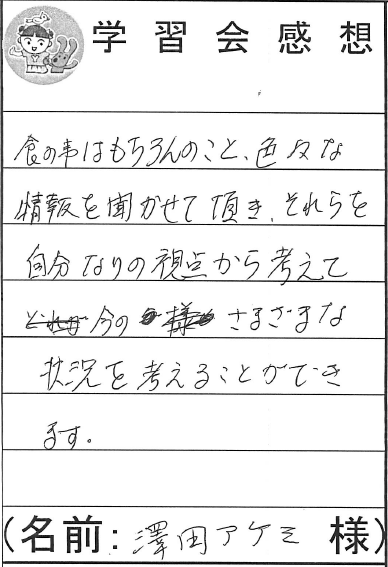 学習会感想
食の事はもちろんのこと、色々な
情報を聞かせて頂き、それらを
自分なりの視点から考えて
今の さまざまな
状況を考えることができ
ます。
(名前:澤田アケミ 様)